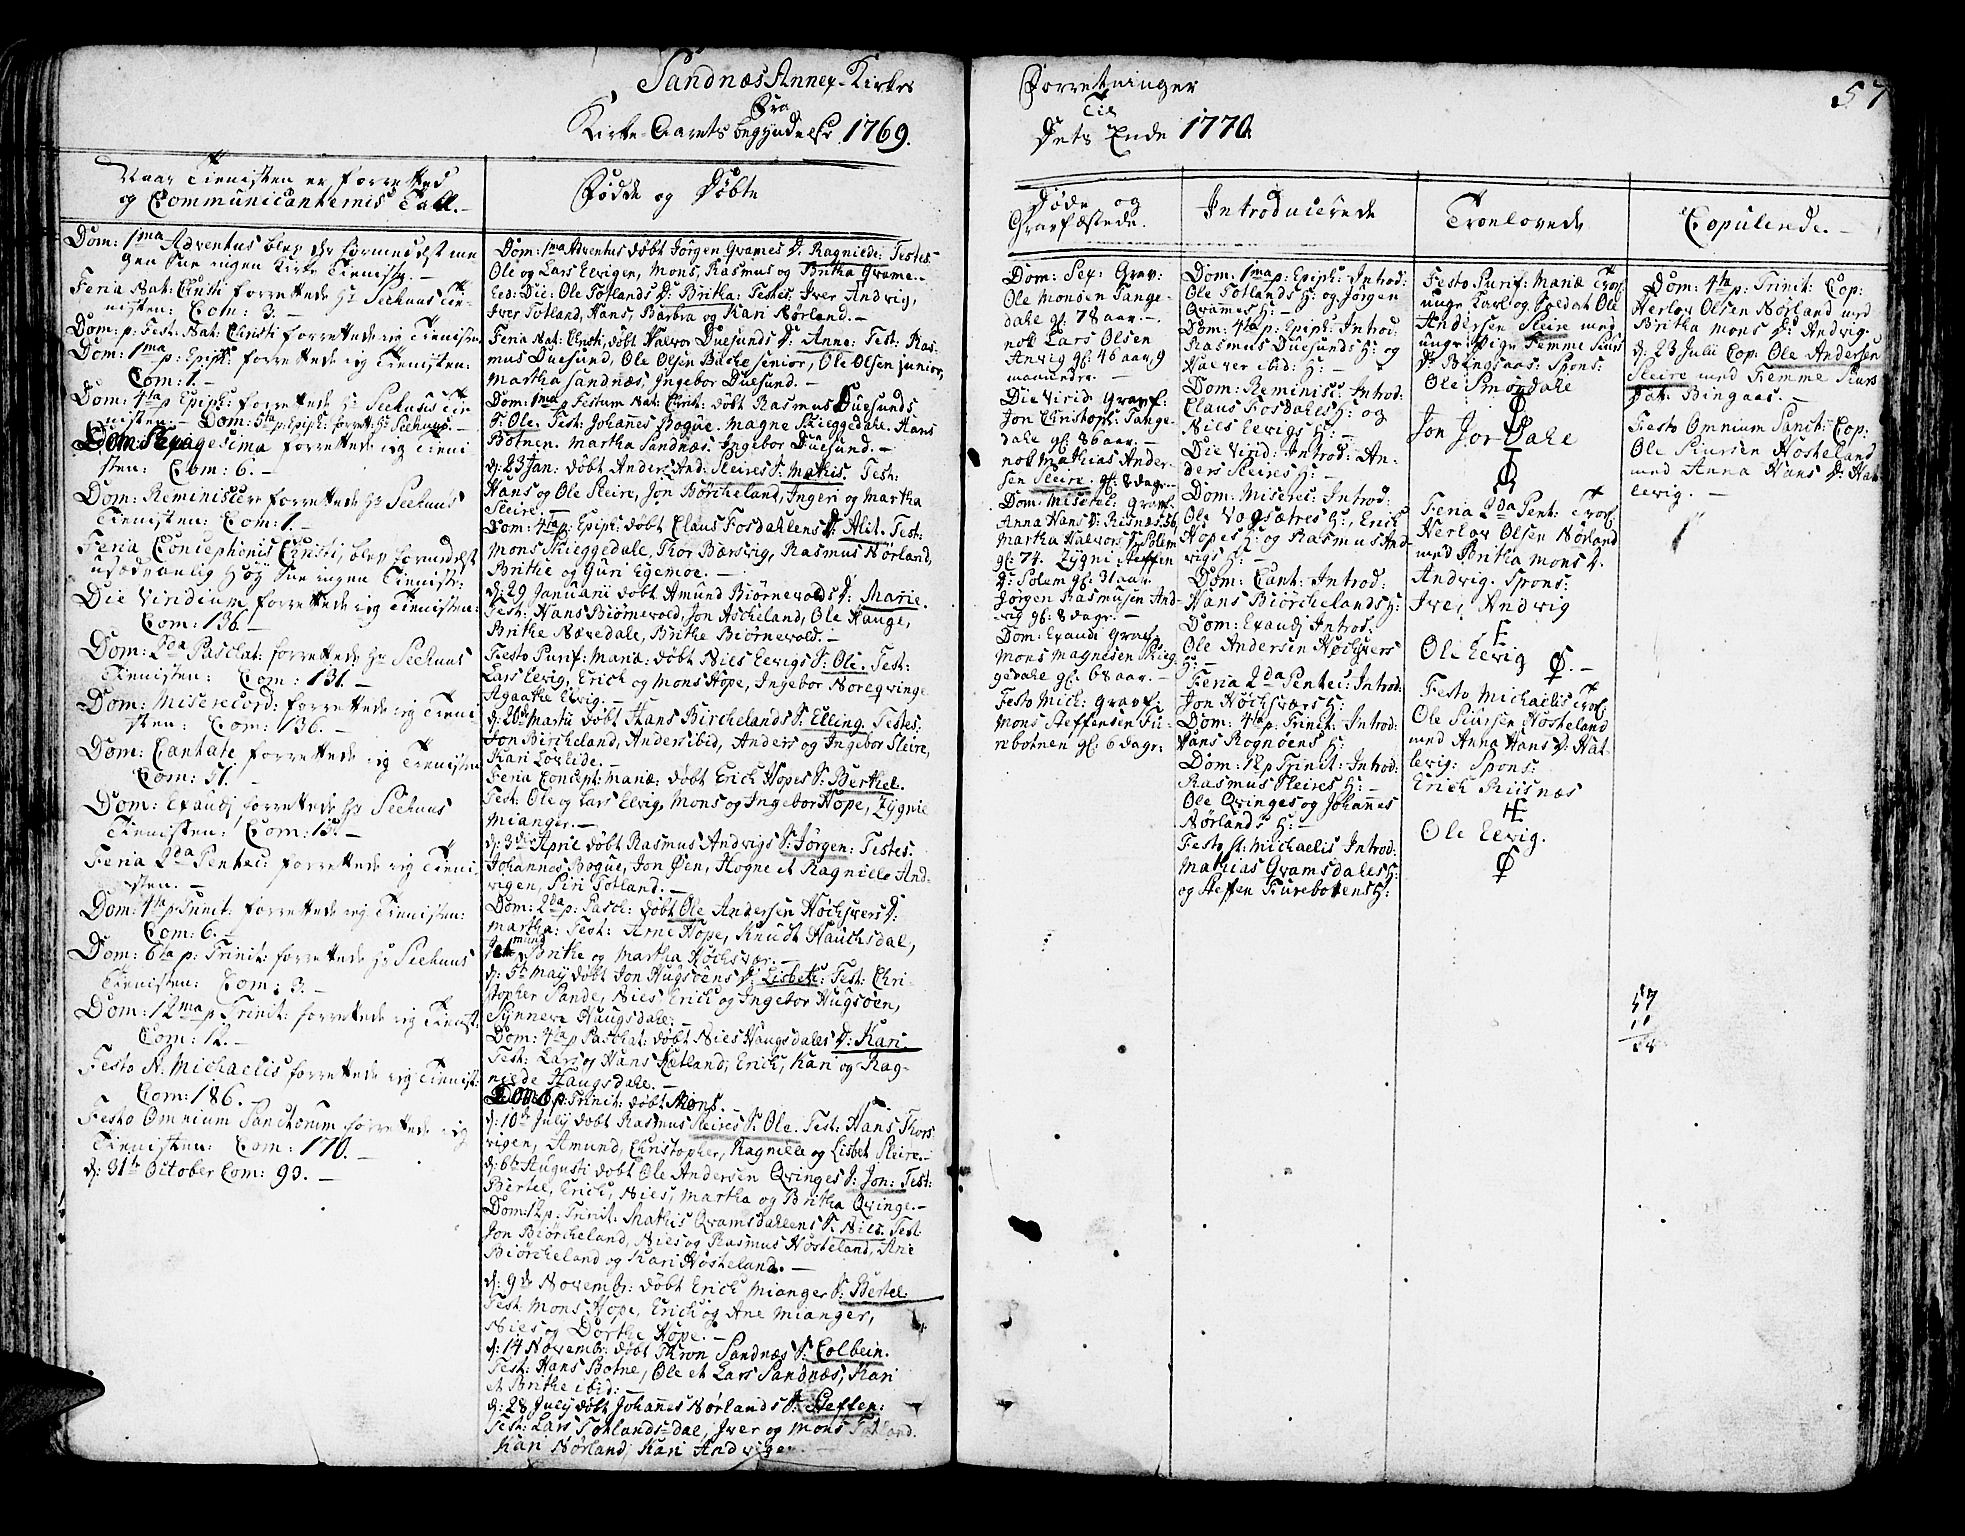 Sandnæs Annex-Kirkes
Fra
Kirke-Aarets begyndelse 1769.
Naar Tienisten er forretted
og Communicanternis Tall.
Fødde og Døbte
Dom: 1ma Adventus blev der formedelst
ingen Kirke Tieniste. -
Feria Nat: Christi forrettede Hr Seehuus Tie-
nisten: Com: 3. -
Dom: p: Fest: Nat: Christi forrettede ieg Tienisten
Dom: 1ma p: Epiph: forrettede ieg Tienisten:
Com: 1. -
Dom: 4ta p: Epiph: forrettede Hr Seehuus Tie-
nisten. - Dom: 5ta p: Epiph: forret: Hr Seehuus. -
Dom: Sexagesima forrettede ieg Tieni
sten: Com: 6. -
Dom: Reminiscere forrettede Hr Seehuus
Tienisten: Com: 1. -
Feria Conceptionis Christi, blev formedelst
usædvanlig Høy Snee ingen Tieniste. -
Die Viridium forrettede ieg Tienisten:
Com: 136. -
Dom: 2da Paschat: forrettede Hr Seehuus
Tienisten: Com: 131. -
Dom: Misericord: forrettede ieg Tieni
sten: Com: 136. -
Dom: Cantate forrettede ieg Tienisten
Com: 51. -
Dom: Exaudj forrettede Hr Seehuus
Tienisten: Com: 15. -
Feria 2da Pentec: forrettede ieg Tieni
sten. -
Dom: 4ta p Trinit: forrettede ieg Tienisten:
Com: 6. -
Dom: 6ta p: Trinit: forrettede Hr Seehuus
Tienisten: Com: 3. -
Dom: 12ma p Trinit: forrettede ieg Tienist:
Com: 12. -
Festo St. Michaelis forrettede ieg Tienist:
Com: 186. -
Festo Omnium Sanctorum forrettede ieg
Tienisten: Com: 170. -
d: 31te October Com: 93. -
Dom: 1ma Adventus døbt Jørgen Qvames D: Ragnilde: Testes:
Ole og Lars Elvigen, Mons, Rasmus og Britha Qvame. -
Eed: Die: Ole Totlands D: Britha: Testes: Iver Andvig,
Iver Totland, Hans, Barbra og Kari Nørland. -
Feria Nat: Christi, døbt Halvor Duesunds D: Anna: Test: Ras-
mus Duesund, Ole Olsen Bache senior, Ole Olsen junior,
Martha Sandnæs, Ingebor Duesund. -
Dom: 1ma p Festum Nat: Christ: døbt Rasmus Duesunds
S: Ole. Test: Johannes Bogne, Magne Skieggedale, Hans
Botnen, Martha Sandnæs, Ingebor Duesund. -
d: 23 Jan: døbt Anders And: Sleires S: Mathis. Test:
Hans og Ole Sleire, Jon Børcheland, Ingeri og Martha
Sleire. -
Dom: 4ta p: Epiph: døbt Claus Fosdahlens D: Alit: Test:
Mons Skieggedale, Thor Bærsvig, Rasmus Nørland,
Brithe og Guri Egemoe. -
d: 29 Januarii døbt Amund Biørnevolds D: Marie.
Test: Hans Biørnevold, Jon Ascheland, Ole Hauge,
Brithe Nævedale, Brithe Biørnevold. -
Festo Purif: Mariæ: døbt Niels Elvigs S: Ole. Test:
Lars Elvig, Erich og Mons Hope, Ingebor Noreqvinge
Agaathe Elvig. -
d: 26de Martii døbt Hans Birchelands S: Elling. Testes:
Jon Bircheland, Anders ibid, Anders og Ingebor Sleire,
Kari Løvlide. -
Feria Concept: Mariæ: døbt Erich Hopes S: Berthel.
Test: Ole og Lars Elvig, Mons og Ingebor Hope, Zygnie
Mianger. -
d: 3die Aprie døbt Rasmus Andvigs S: Jørgen: Testes:
Johannes Bogne, Jon Øen, Hogne et Ragnille And-
vigen, Siri Totland. -
Dom: 2da p: Pasch: døbt Ole Andersen Høchsvers D:
Martha: Test: Arne Hope, Knudt Hauchsdal,
Brithe og Martha Høchsvær. -
d: 5te May døbt Jon Hugsøens D: Lisbeth: Test: Chri-
stopher Sande, Niels Erich og Ingebor Hugsøen,
Synneve Haugsdale. -
Dom: 4ta p Paschat: døbt Niels Haugsdales D: Kari.
Test: Lars og Hans Kætland, Erich, Kari og Rag-
nilde Haugsdale. -
Dom: 6 p: Trinit: døbt Mons.
d: 10de July døbt Rasmus Sleires S: Ole. Test: Hans Thors
vigen, Amund, Christopher, Ragnille og Lisbet Sleire. -
d: 6te Augusti døbt Ole Andersen Qvinges S: Jon: Test:
Bertel, Erich, Niels, Martha og Britha Qvinge. -
Dom: 12 p: Trinit: Mathis Qvamsdalens S: Nils. Test:
Jon Biørcheland, Niels og Rasmus Hosteland, Ane
Biørcheland og Kari Hosteland. -
d: 9de Novembr: døbt Erich Mianger S: Bertel.
Test: Mons Hope, Erich og Ane Mianger,
Niels og Dorthe Hope. -
d: 14 Novembr: døbt Thron Sandnæs S: Colbein.
Test: Hans Botne, Ole et Lars Sandnæs, Kari
et Brithe ibid: -
d: 28 July døbt Johannes Nørlands S: Steffen:
Test: Lars Totlands-dal, Iver og Mons Totland.
Kari Nørland, Kari Andvigen. -
Forretninger
Til
Dets Ende 1770
57
Døde og
Gravfæstede.
Introducerede
Trolovede
Copulerede. -
Dom: Sex: Grav:
Ole Monsen Tange-
dale gl: 78 aar. -
nok Lars Olsen
Anvig gl: 46 aar, 9
maaneder. -
Die Virid Gravf:
Jon Christoph: Tange-
dale gl: 86 aar. -
nok Mathias Ander-
sen Sleire. gl: 8 dage -
Dom: Miseric: Gravf:
Anna Hans D: Risnæs. 56
Martha Halvors D: Solem
gl: 74. Zygni Steffen
D: Solem gl: 31 aar.
Jørgen Rasmusen And-
vig gl: 8 dage. -
Dom: Exaudi Gravf:
Mons Magnesen Skieg
gedale gl: 68 aar. -
Festo Mich: Gravf:
Mons Steffensen Fu-
rebotnen gl: 6 dage:
Dom: 1ma p: Epiph: Introd:
Ole Totlands H: og Jørgen
Qvames H: -
Dom: 4ta p: Epiph: Introd:
Rasmus Duesunds H: og
Halvor ibid: H: -
Dom: Reminisc: Introd:
Claus Fosdales H: og
Niels Elvigs H: -
Die Virid: Introd: An-
ders Sleires H: -
Dom: Miseric: Introd:
Ole Vogsætres H:, Erich
Hopes H: og Rasmus And-
vigs H: -
Dom: Cant: Introd:
Hans Biørchelands H:
Dom: Exaudj Introd:
Ole Andersen Høchsvers
H: -
Feria 2da Pentec: Introd:
Jon Høchsværs H:
Dom: 4ta p: Trinit: Introd:
Hans Rognøens H:
Dom: 12 p Trinit: Introd:
Rasmus Sleires H: -
Ole Qvinges og Johannes
Nørlands H: -
Festo St: Michaelis Introd:
Mathias Qvamsdales H:
og Steffen Furebotens H:
Festo Purif: Mariæ Trol:
unge Karl og Soldat Ole
Andersen Sleire med
unge Pige Femme Siurs
D: Bingaas: Spons:
Ole Smørdale
Jon Jordale
Feria 2da Pent: Trol:
Herlov Olsen Nørland
med Britha Mons D:
Andvig. Spons:
Iver Andvig
Ole Elvig
Festo Michaelis Trol:
Ole Siursen Hosteland
med Anna Hans D: Hat-
levig: Spons:
Erich Riisnæs
Ole Elvig.
Dom: 4ta p: Trinit: Cop:
Herlov Olsen Nørland med
Britha Mons D: Andvig.
d: 23 Julii Cop: Ole Andersen
Sleire med Femme Siurs
Dat: Bingaas. -
Festo Omnium Sanct: Cop:
Ole Siursen Hosteland
med Anna Hans D: Hat
levig. -
57